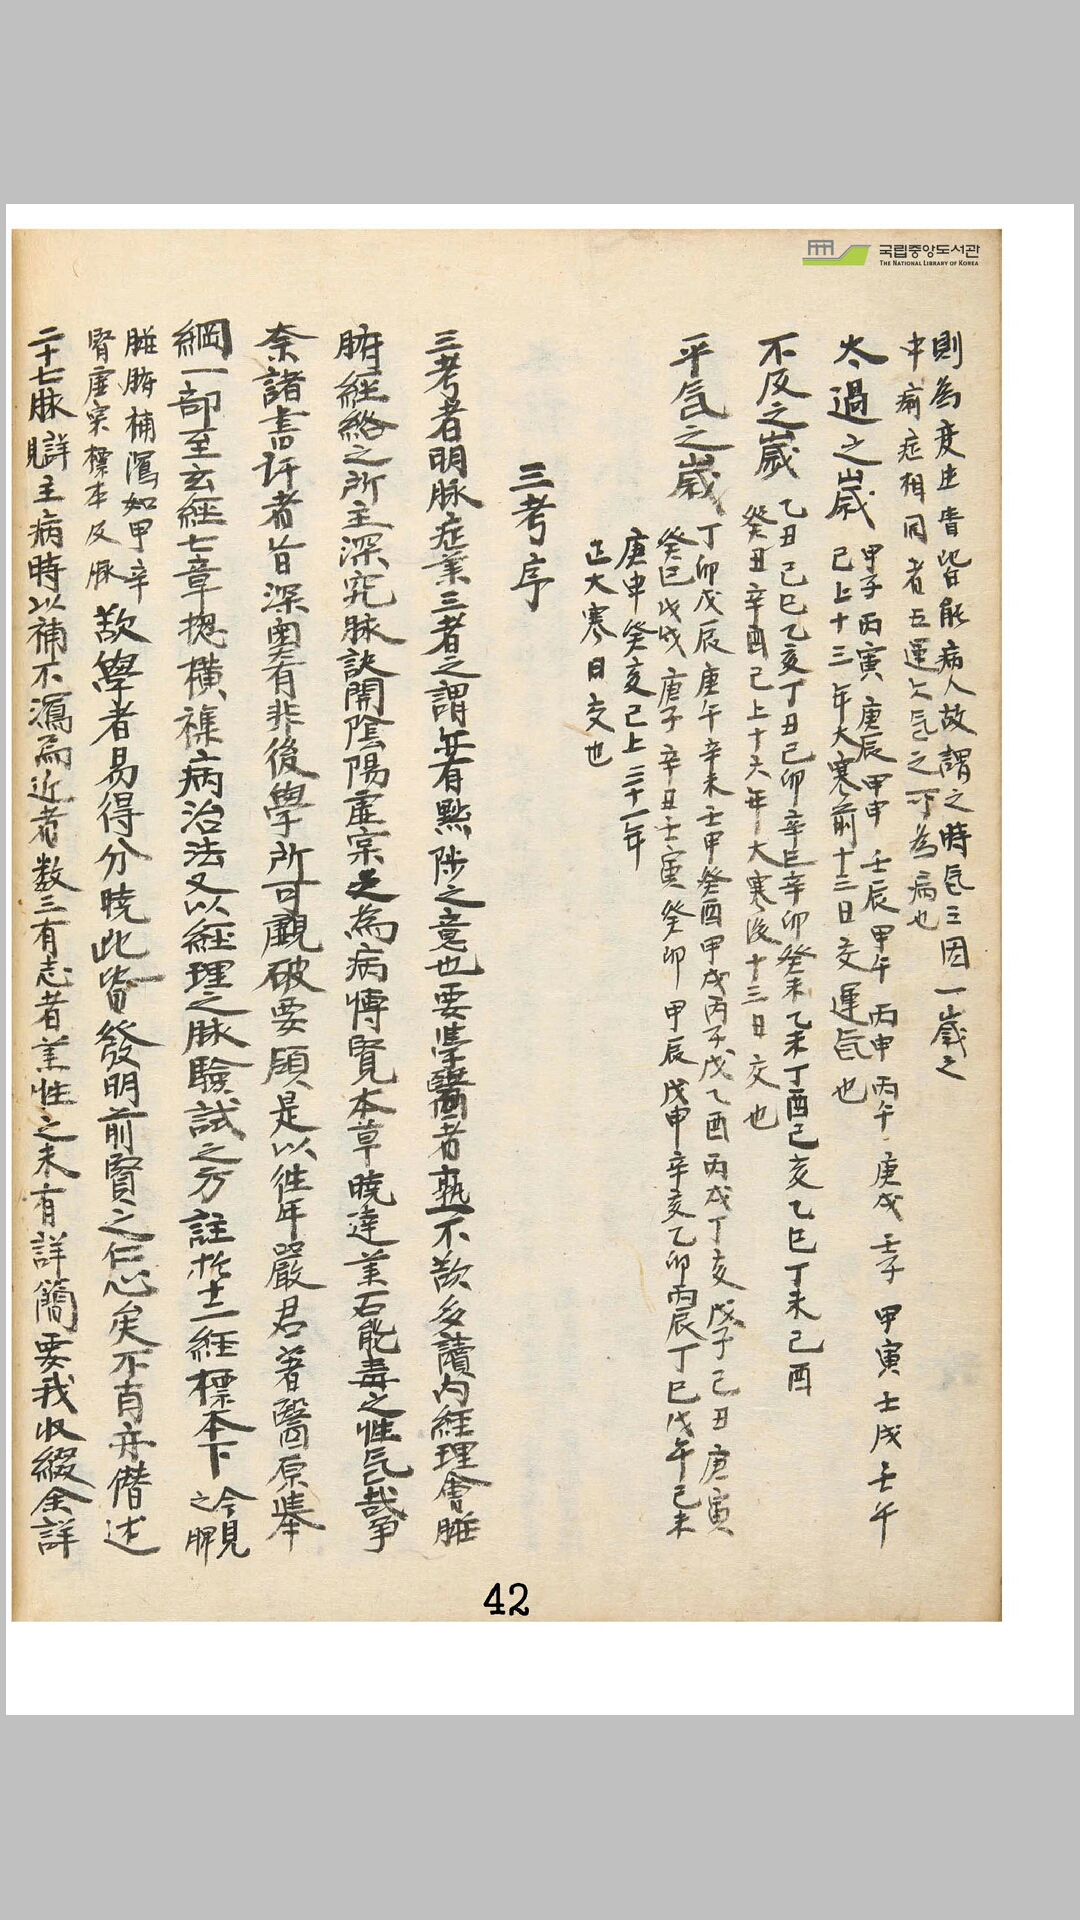 국립중앙도서관
THE NATIONAL LIBRARY OF KOREA
則為疫出眚皆能病人故謂之時氣三因一歲之
中病症相同者五運六氣之所為病也
太過之歲
甲子丙寅庚辰甲申壬辰甲午丙申丙午庚戌壬子甲寅壬戌壬午
已上十三年大寒前十三日交運氣也
不及之歲
乙丑己巳乙亥丁丑己卯辛巳辛卯癸未乙未丁酉己亥乙巳丁未己酉
癸丑辛酉已上十六年大寒後十三日交也
平氣之歲
丁卯戊辰庚午辛未壬申癸酉甲戌丙子戊乙酉丙戌丁亥戊子己丑庚寅
癸巳戊戌庚子辛丑壬寅癸卯甲辰戊申辛亥乙卯丙辰丁巳戊午己未
庚申癸亥已上三十一年
正大寒日交也
三考序
三考者明脉症藥三者之謂並有黜陟之意也要學醫者熟不欲多讀內經理會臟
腑經絡之所主深究脉訣開陰陽虛宲之為病愽覽本草曉達藥石能毒之性氣哉爭
奈諸書許者旨深奧有非後學所可覷破要頭是以徃年嚴君著醫原擧
綱一部至玄經七章揔橫襍病治法又以經理之脉驗試之方註於十二經標本下 今見之脾
臟腑補瀉如甲辛
腎虛宲標本及脉
歆學者易得分曉此皆發明前賢之仁心矣不肖弃僭述
二十七脉詳見主病時以補不瀉而近者数三有志者藥性之未有詳簡要我收綴余詳
42